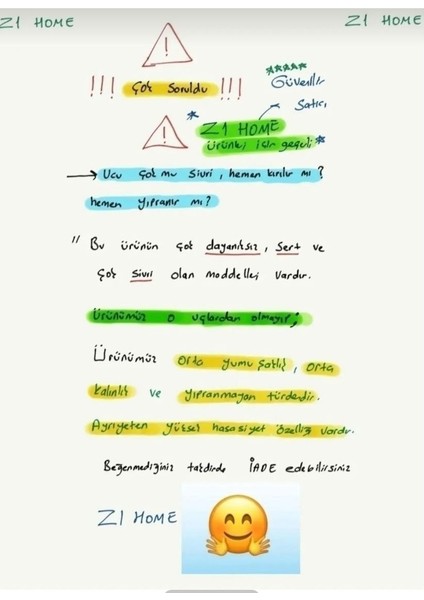 Z1 HOME
Z1 HOME
!!! Çok Soruldu !!!
Güvenilir
Satıcı
Z1 HOME
ürünü için geçerli
→ Ucu Çok mu Sivri, hemen kırılır mı?
hemen yıpranır mı?
" Bu ürünün çok dayanıksız, Sert ve
Çok Sivri olan modelleri vardır.
Ürünümüz o uçlardan olmayıp;
Ürünümüz Orta yumuşaklık, orta
kalınlık ve yıpranmayan türdendir.
Ayrıyeten yüksek hassasiyet özelliği vardır.
Beğenmediğiniz takdirde İADE edebilirsiniz
Z1 HOME